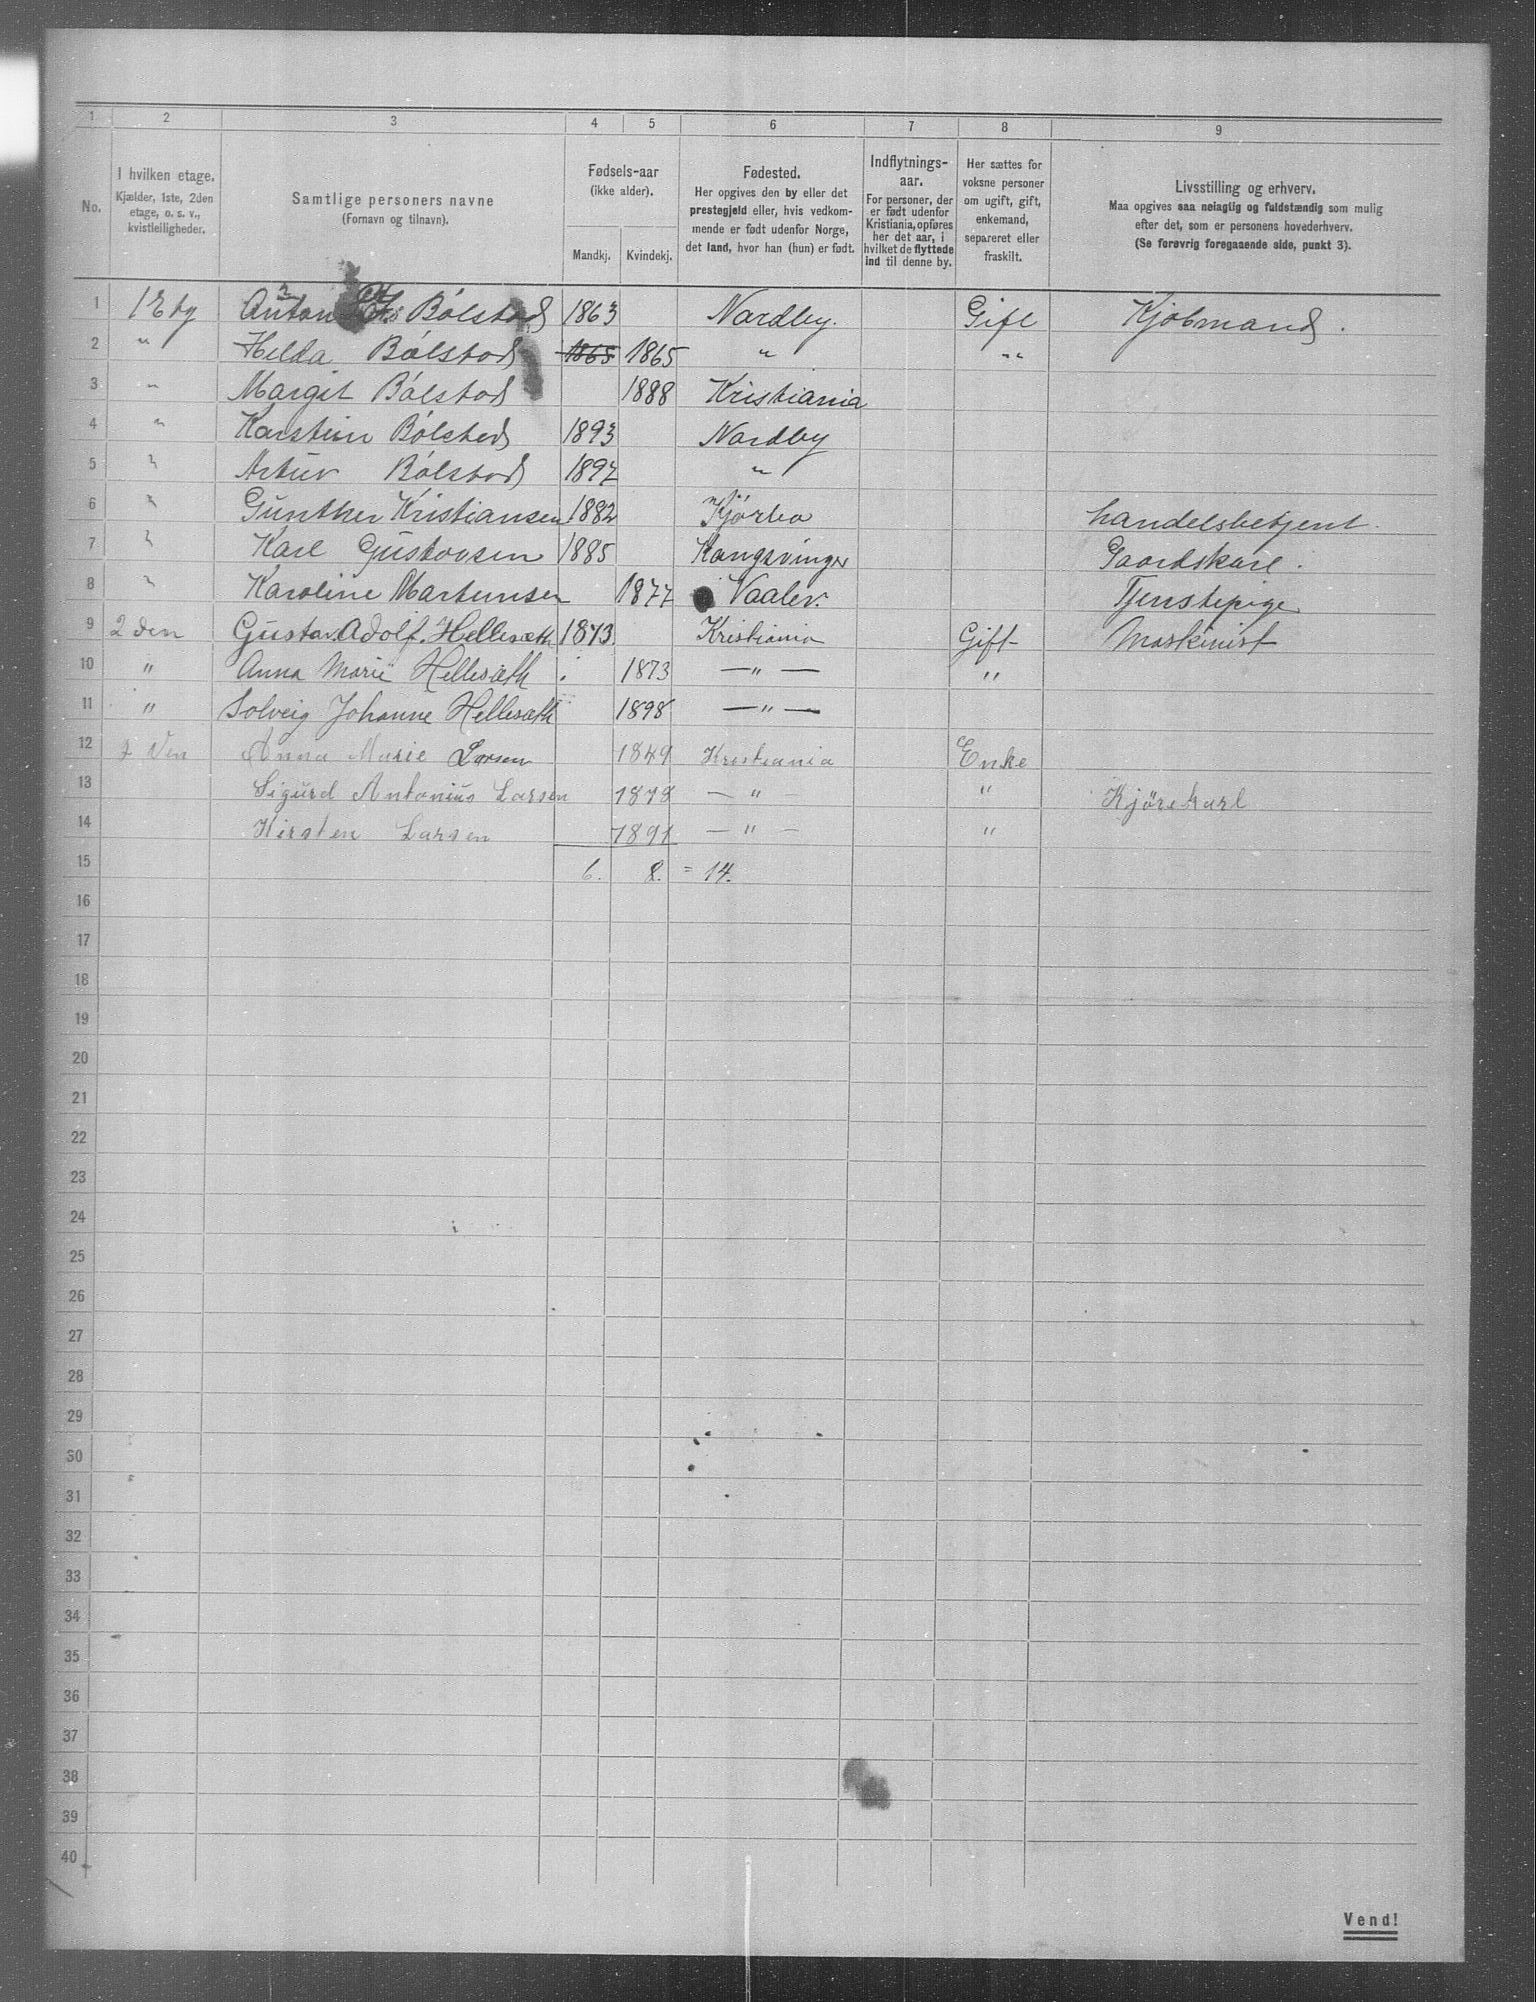 1 2 3 4 5 6 7 8 9
No.
I hvilken etage.
Kjælder, 1ste, 2den
etage, o. s. v.,
kvistleiligheder.
Samtlige personers navne
(Fornavn og tilnavn).
Fødsels-aar
(ikke alder).
Mandkj. Kvindekj.
Fødested.
Her opgives den by eller det
prestegjeld eller, hvis vedkom-
mende er født udenfor Norge,
det land, hvor han (hun) er født.
Indflytnings-
aar.
For personer, der
er født udenfor
Kristiania, opføres
her det aar, i
hvilket de flyttede
ind til denne by.
Her sættes for
voksne personer
om ugift, gift,
enkemand,
separeret eller
fraskilt.
Livsstilling og erhverv.
Maa opgives saa nøiagtig og fuldstændig som mulig
efter det, som er personens hovederhverv.
(Se forøvrig foregaaende side, punkt 3).
1 1 Etg Anton Bölstad 1863 Nordby. Gift Kjöbmand.
2 " Helda Bölstad 1865 1865 " "
3 " Margit Bölstad 1888 Kristiania
4 " Karsten Bölstad 1893 Nordby
5 " Artur Bölstad 1897 "
6 " Gunther Kristiansen 1882 handelsbetjent.
7 " Karl Gustavsen 1885 Kongsvinger Gaardskarl.
8 " Karoline Martinsen 1877 Vaaler. Tjenstepige
9 2 den Gustav Adolf. Hellesæth 1873. Kristiania Gift Maskinist
10 " Anna Marie Hellesæth 1873 — " — "
11 " Solveig Johanne Hellesæth 1898 — " —
12 2 den Anna Marie Larsen 1849 Kristiania Enke
13 Sigurd Antonius Larsen 1878 — " — " Kjørekarl
14 Kirsten Larsen 1891 — " — "
15 6. 8. = 14.
16
17
18
19
20
21
22
23
24
25
26
27
28
29
30
31
32
33
34
35
36
37
38
39
40
Vend!